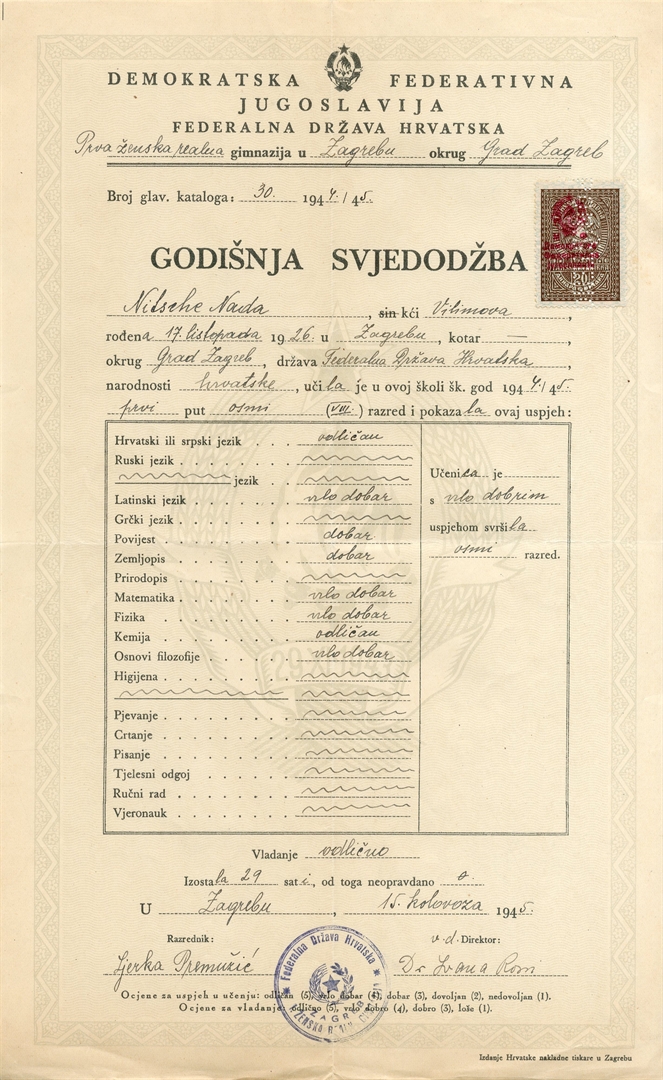 DEMOKRATSKA FEDERATIVNA
JUGOSLAVIJA
FEDERALNA DRŽAVA HRVATSKA
Prva ženska realna gimnazija u Zagrebu okrug Grad Zagreb
Broj glav. kataloga: 30. 1944/45.
GODIŠNJA SVJEDODŽBA
Nitsche Nada, sin kći Vilimova,
rođena 17. listopada 1926. u Zagrebu, kotar —,
okrug Grad Zagreb, država Federalna Država Hrvatska,
narodnosti hrvatske, učila je u ovoj školi šk. god 1944/45.
prvi put osmi (VIII.) razred i pokazala ovaj uspjeh:
Hrvatski ili srpski jezik . . . odličan
Ruski jezik
jezik
Latinski jezik vrlo dobar
Grčki jezik
Povijest dobar
Zemljopis dobar
Prirodopis
Matematika vrlo dobar
Fizika vrlo dobar
Kemija odličan
Osnovi filozofije vrlo dobar
Higijena
Pjevanje
Crtanje
Pisanje
Tjelesni odgoj
Ručni rad
Vjeronauk
Učenica je
s vrlo dobrim
uspjehom svršila
osmi razred.
Vladanje odlično
Izostala 29 sati, od toga neopravdano 0.
U Zagrebu, 15. kolovoza 1945.
Razrednik: v.d. Direktor:
Ljerka Premužić Dr Ivana Rossi
Federalna Država Hrvatska
ZAGREB
Ocjene za uspjeh u učenju: odličan (5), vrlo dobar (4), dobar (3), dovoljan (2), nedovoljan (1).
Ocjene za vladanje: odlično (5), vrlo dobro (4), dobro (3), loše (1).
Izdanje Hrvatske nakladne tiskare u Zagrebu